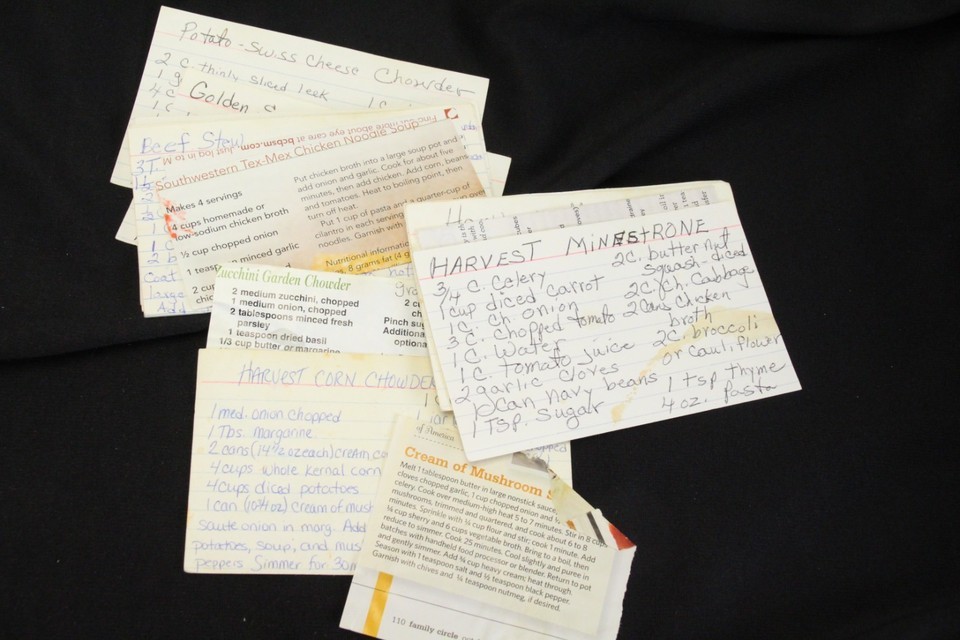 Potato - Swiss Cheese Chowder
2 C. thinly sliced leek
1 g
4 C
1 C
Golden S
Beef Stew
3 T.
Find out more about eye care at bcbsm.com. Just log in to M
Southwestern Tex-Mex Chicken Noodle Soup
Makes 4 servings
4 cups homemade or
low-sodium chicken broth
½ cup chopped onion
1 teaspoon minced garlic
2 cup
chic
Put chicken broth into a large soup pot and
add onion and garlic. Cook for about five
minutes, then add chicken. Add corn, beans
and tomatoes. Heat to boiling point, then
turn off heat.
Put 1 cup of pasta and a quarter-cup of
cilantro in each serving
noodles. Garnish with
Nutritional information
8 grams fat (4 g
1 C
2 b
Coat
large
Add
hot
gro
Zucchini Garden Chowder
2 medium zucchini, chopped
1 medium onion, chopped
2 tablespoons minced fresh
parsley
1 teaspoon dried basil
1/3 cup butter or margarine
2 c
Pinch sug
Additiona
optiona
HARVEST CORN CHOWDER
1 med. onion chopped
1 Tbs. margarine
2 cans (14½ oz each) cream co
4 cups whole kernal corn
4 cups diced potatoes
1 can (10¾ oz) cream of mus
saute onion in marg. Add
potatoes, soup, and mus
peppers Simmer for 30m
HARVEST MINESTRONE
¾ C. Celery
1 cup diced carrot
1 C. Ch. onion
3 C. Chopped tomato
1 C. Water
1 C. tomato juice
2 garlic cloves
1 can navy beans
1 Tsp. Sugar
2 C. butternut
squash-diced
2 C. ch. Cabbage
2 Cans chicken
broth
2 C. broccoli
or cauliflower
1 tsp thyme
4 oz. pasta
of America
Cream of Mushroom S
Melt 1 tablespoon butter in large nonstick sauce
cloves chopped garlic, 1 cup chopped onion and ½
celery. Cook over medium-high heat 5 to 7 minutes. Stir in 8 cups
mushrooms, trimmed and quartered, and cook about 6 to 8
minutes. Sprinkle with ¼ cup flour and stir; cook 1 minute. Add
¼ cup sherry and 6 cups vegetable broth. Bring to a boil, then
reduce to simmer. Cook 25 minutes. Cool slightly and puree in
batches with handheld food processor or blender. Return to pot
and gently simmer. Add ¾ cup heavy cream; heat through.
Season with 1 teaspoon salt and ½ teaspoon black pepper.
Garnish with chives and ¼ teaspoon nutmeg, if desired.
110 family circle